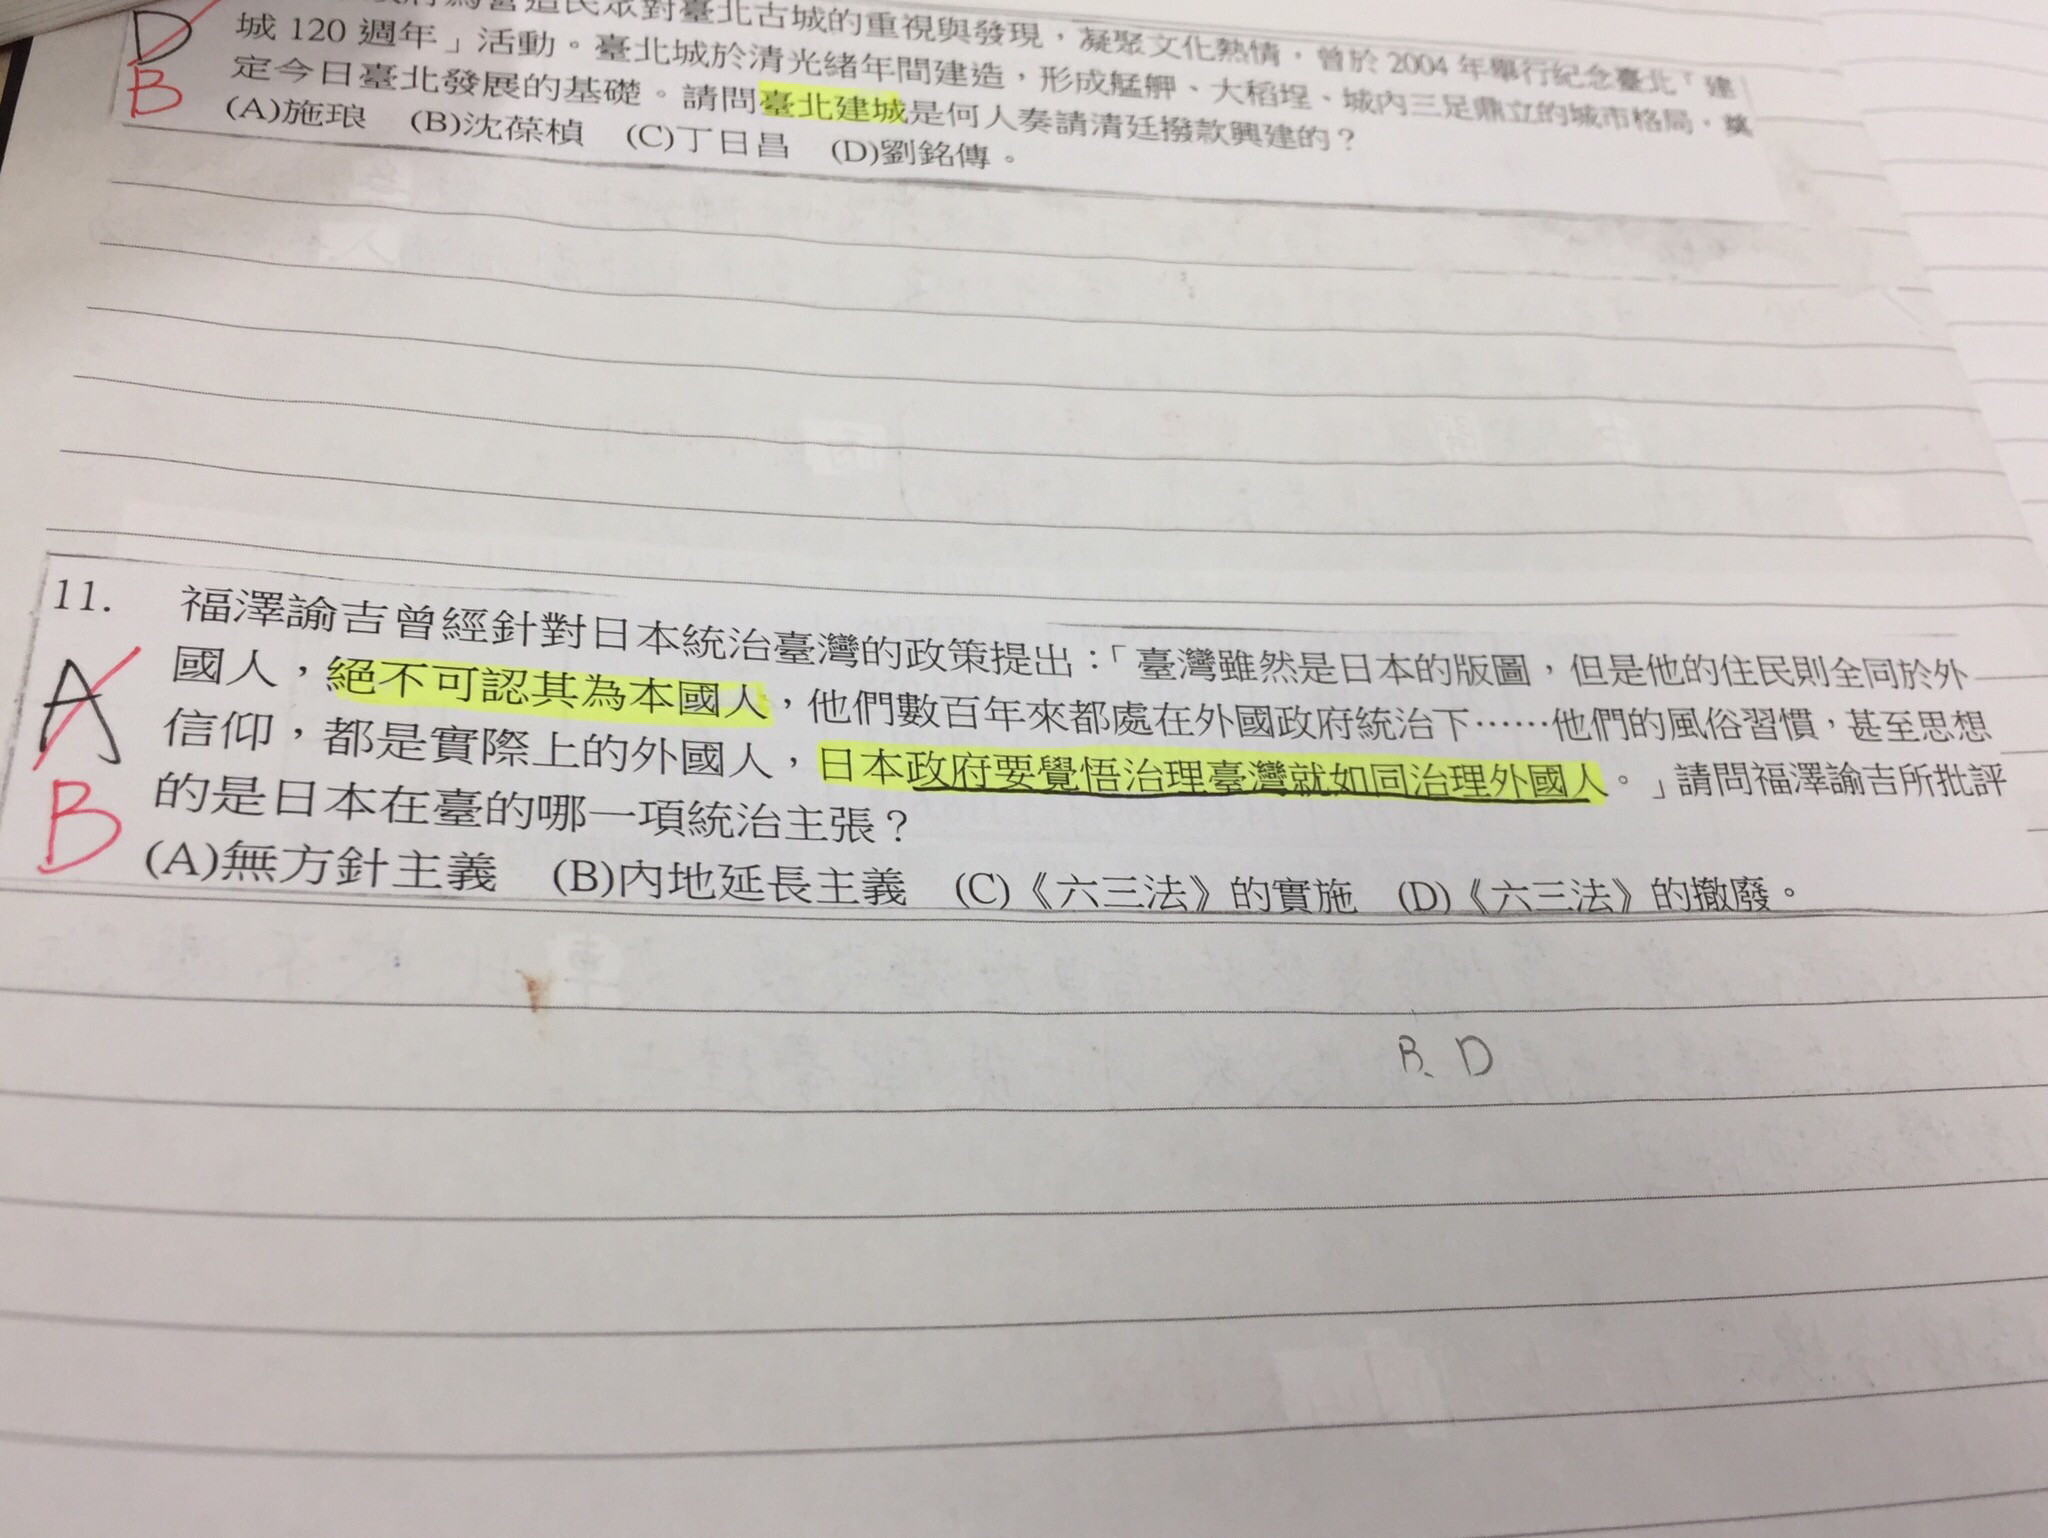 營造民眾對臺北古城的重視與發現，凝聚文化熱情，曾於 2004 年舉行紀念臺北「建
D 城 120 週年」活動。臺北城於清光緒年間建造，形成艋舺、大稻埕、城內三足鼎立的城市格局，奠
B 定今日臺北發展的基礎。請問臺北建城是何人奏請清廷撥款興建的？
(A)施琅 (B)沈葆楨 (C)丁日昌 (D)劉銘傳。
11. 福澤諭吉曾經針對日本統治臺灣的政策提出：「臺灣雖然是日本的版圖，但是他的住民則全同於外
A 國人，絕不可認其為本國人，他們數百年來都處在外國政府統治下……他們的風俗習慣，甚至思想
信仰，都是實際上的外國人，日本政府要覺悟治理臺灣就如同治理外國人。」請問福澤諭吉所批評
B 的是日本在臺的哪一項統治主張？
(A)無方針主義 (B)內地延長主義 (C)《六三法》的實施 (D)《六三法》的撤廢。
B、D